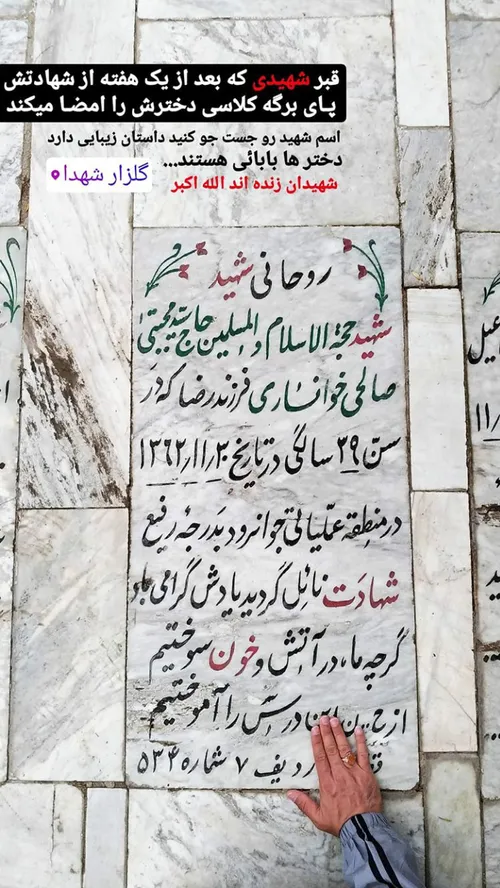 قبر شهیدی که بعد از یک هفته از شهادتش
پای برگه کلاسی دخترش را امضا میکند
اسم شهید رو جست جو کنید داستان زیبایی دارد
دختر ها بابائی هستند...
شهیدان زنده اند الله اکبر
گلزار شهدا
روحانی شهید
شهید حجة الاسلام و المسلمین حاج سید مجتبی
صالحی خوانساری فرزند رضا که در
سن ۳۹ سالگی در تاریخ ۱۳۶۲/۱۱/۲۰
در منطقه عملیاتی جوانرود بدرجه رفیع
شهادت نائل گردید یادش گرامی باد
گرچه ما، در آتش و خون سوختیم
از این درس را آموختیم
ردیف ۷ شماره ۵۳۴